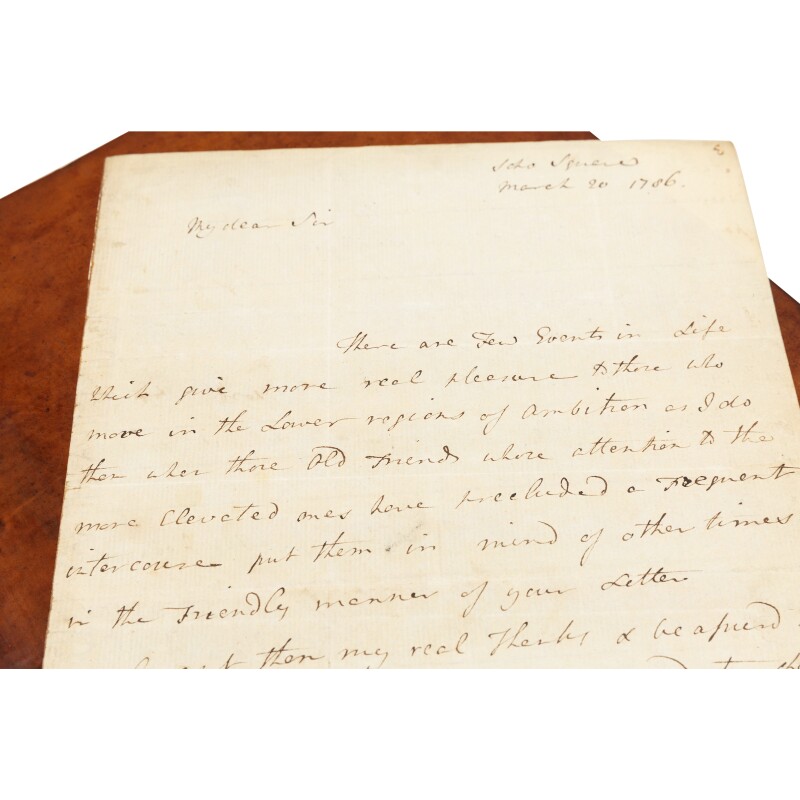 Soho Square
March 20 1786.
My dear Sir
There are Few Events in Life
Which give more real pleasure to those who
move in the Lower regions of Ambition as I do
then when those Old Friends whose attention to the
more Elevated ones have precluded a Frequent
intercourse put them in mind of other times
in the Friendly manner of your Letter
then my real Thanks & be assurd